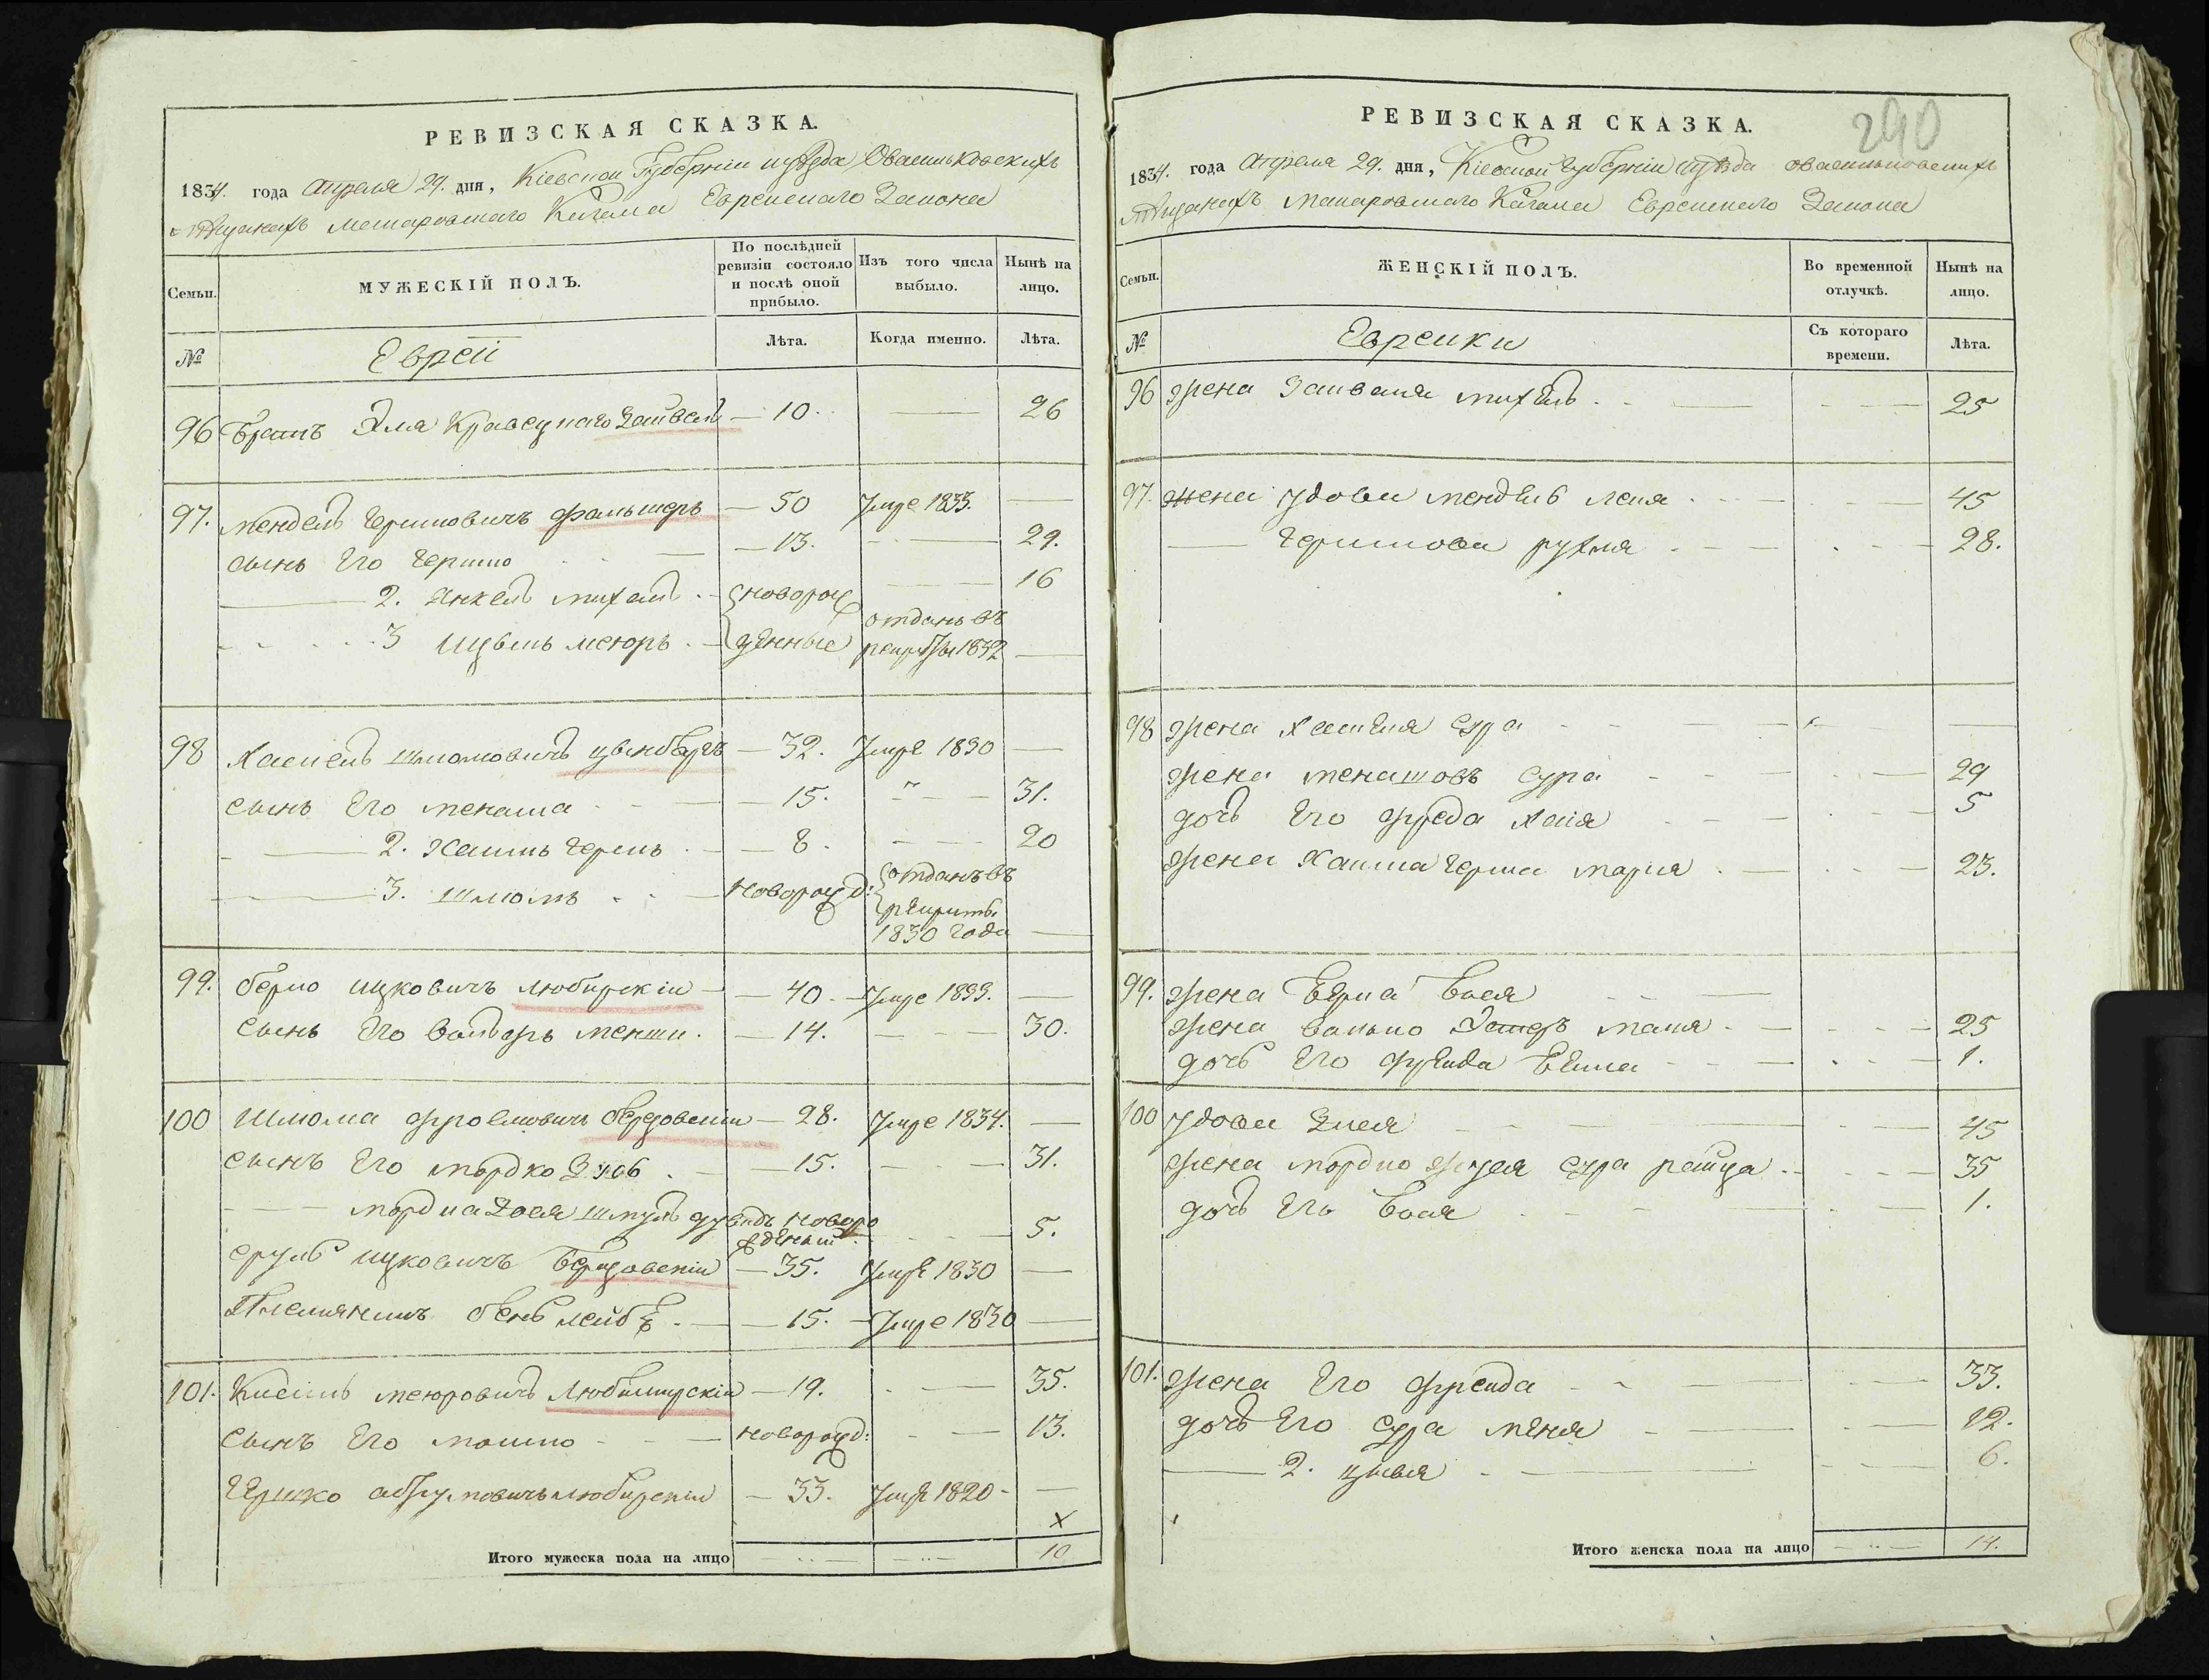 РЕВИЗСКАЯ СКАЗКА.
1834. года апреля 29. дня, Кіевской Губерніи уѣзда Оваسильковскихъ
мѣщанехъ Макаровскаго Кагала Евреискаго Закона
Семьи.
МУЖЕСКІЙ ПОЛЪ.
По послѣдней ревизіи состояло и послѣ оной прибыло.
Изъ того числа выбыло.
Нынѣ на лицо.
№
Еврей
Лѣта.
Когда именно.
Лѣта.
96 Братъ Эля Зайвель — 10. — 26
97. Мендель Гершковичъ Фальшеръ — 50 Умре 1833. —
сынъ Его Гершко — 13. — 29.
2. Янкель Михель новорож 16
3 Ицько Меюръ денные отданъ въ рекруты 1832 —
98 Хаскель Шмолиовичъ Цвинбергъ — 32. Умре 1830 —
сынъ Его Менаша — 15. — 31.
2. Хаимъ Герш — 8. — 20
3. Шлиома — новорожд: отданъ въ
рекруты
1830 года —
99. Берко Ицковичъ Любирскій — 40. — Умре 1833. —
сынъ Его Менаши. — 14. — 30.
100 Шлиома Фроимовичъ — 28. Умре 1834. —
сынъ Его Мордко — 15. — 31.
Мордка Шмуль новоро
жденый — 5.
Сруль Ицковичъ — 35. Умре 1830 —
Племянникъ Бенъ Лейбъ — 15. — Умре 1830 —
101. Кисиль Меюровичъ — 19. — 35.
сынъ Его Мошко — новорожд: — 13.
Гершко Абрумовичъ Любирскій — 33. Умре 1820 — —
х
Итого мужеска пола на лицо 10
РЕВИЗСКАЯ СКАЗКА.
290
1834. года апреля 29. дня, Кіевской Губерніи уѣзда
мѣщанехъ Макаровскаго Кагала Евреискаго Закона
Семьи.
ЖЕНСКІЙ ПОЛЪ.
Во временной отлучкѣ.
Нынѣ на лицо.
№
Евреики
Съ котораго времени.
Лѣта.
96 жена Зайвеля Михля — 25
97. жена удова Мендель Лея — 45
Гершкова Рухля — 28.
98 жена Хаскеля Сура — —
жена Менашовъ Сура — 29
дочь Его Фреда Хаія — 5
жена Хаима Герша Марія — 23.
99. жена Берка Бася —
жена Эстеръ Маля — 25
дочь Его Фрейда Бейла — 1.
100 удова — 45
жена Мордко Сура Райца — 35
дочь Его Бася — 1.
101. жена Его Фрейда — 33.
дочь Его Сура Меня — 12.
2. Цывія — 6.
Итого женска пола на лицо 14.